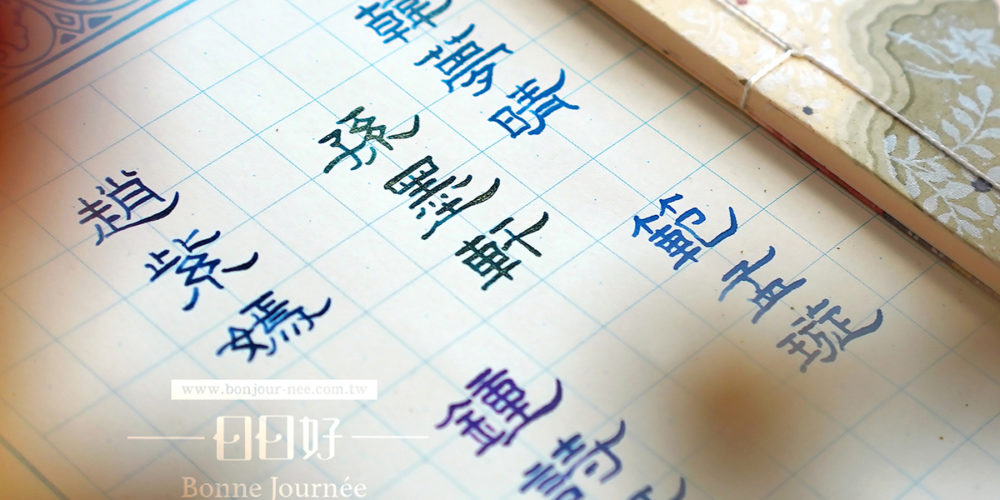 韓夢晴
範孟璇
孫墨軒
趙紫嫣
鍾詩
www.bonjour-nee.com.tw
日日好
Bonne Journée